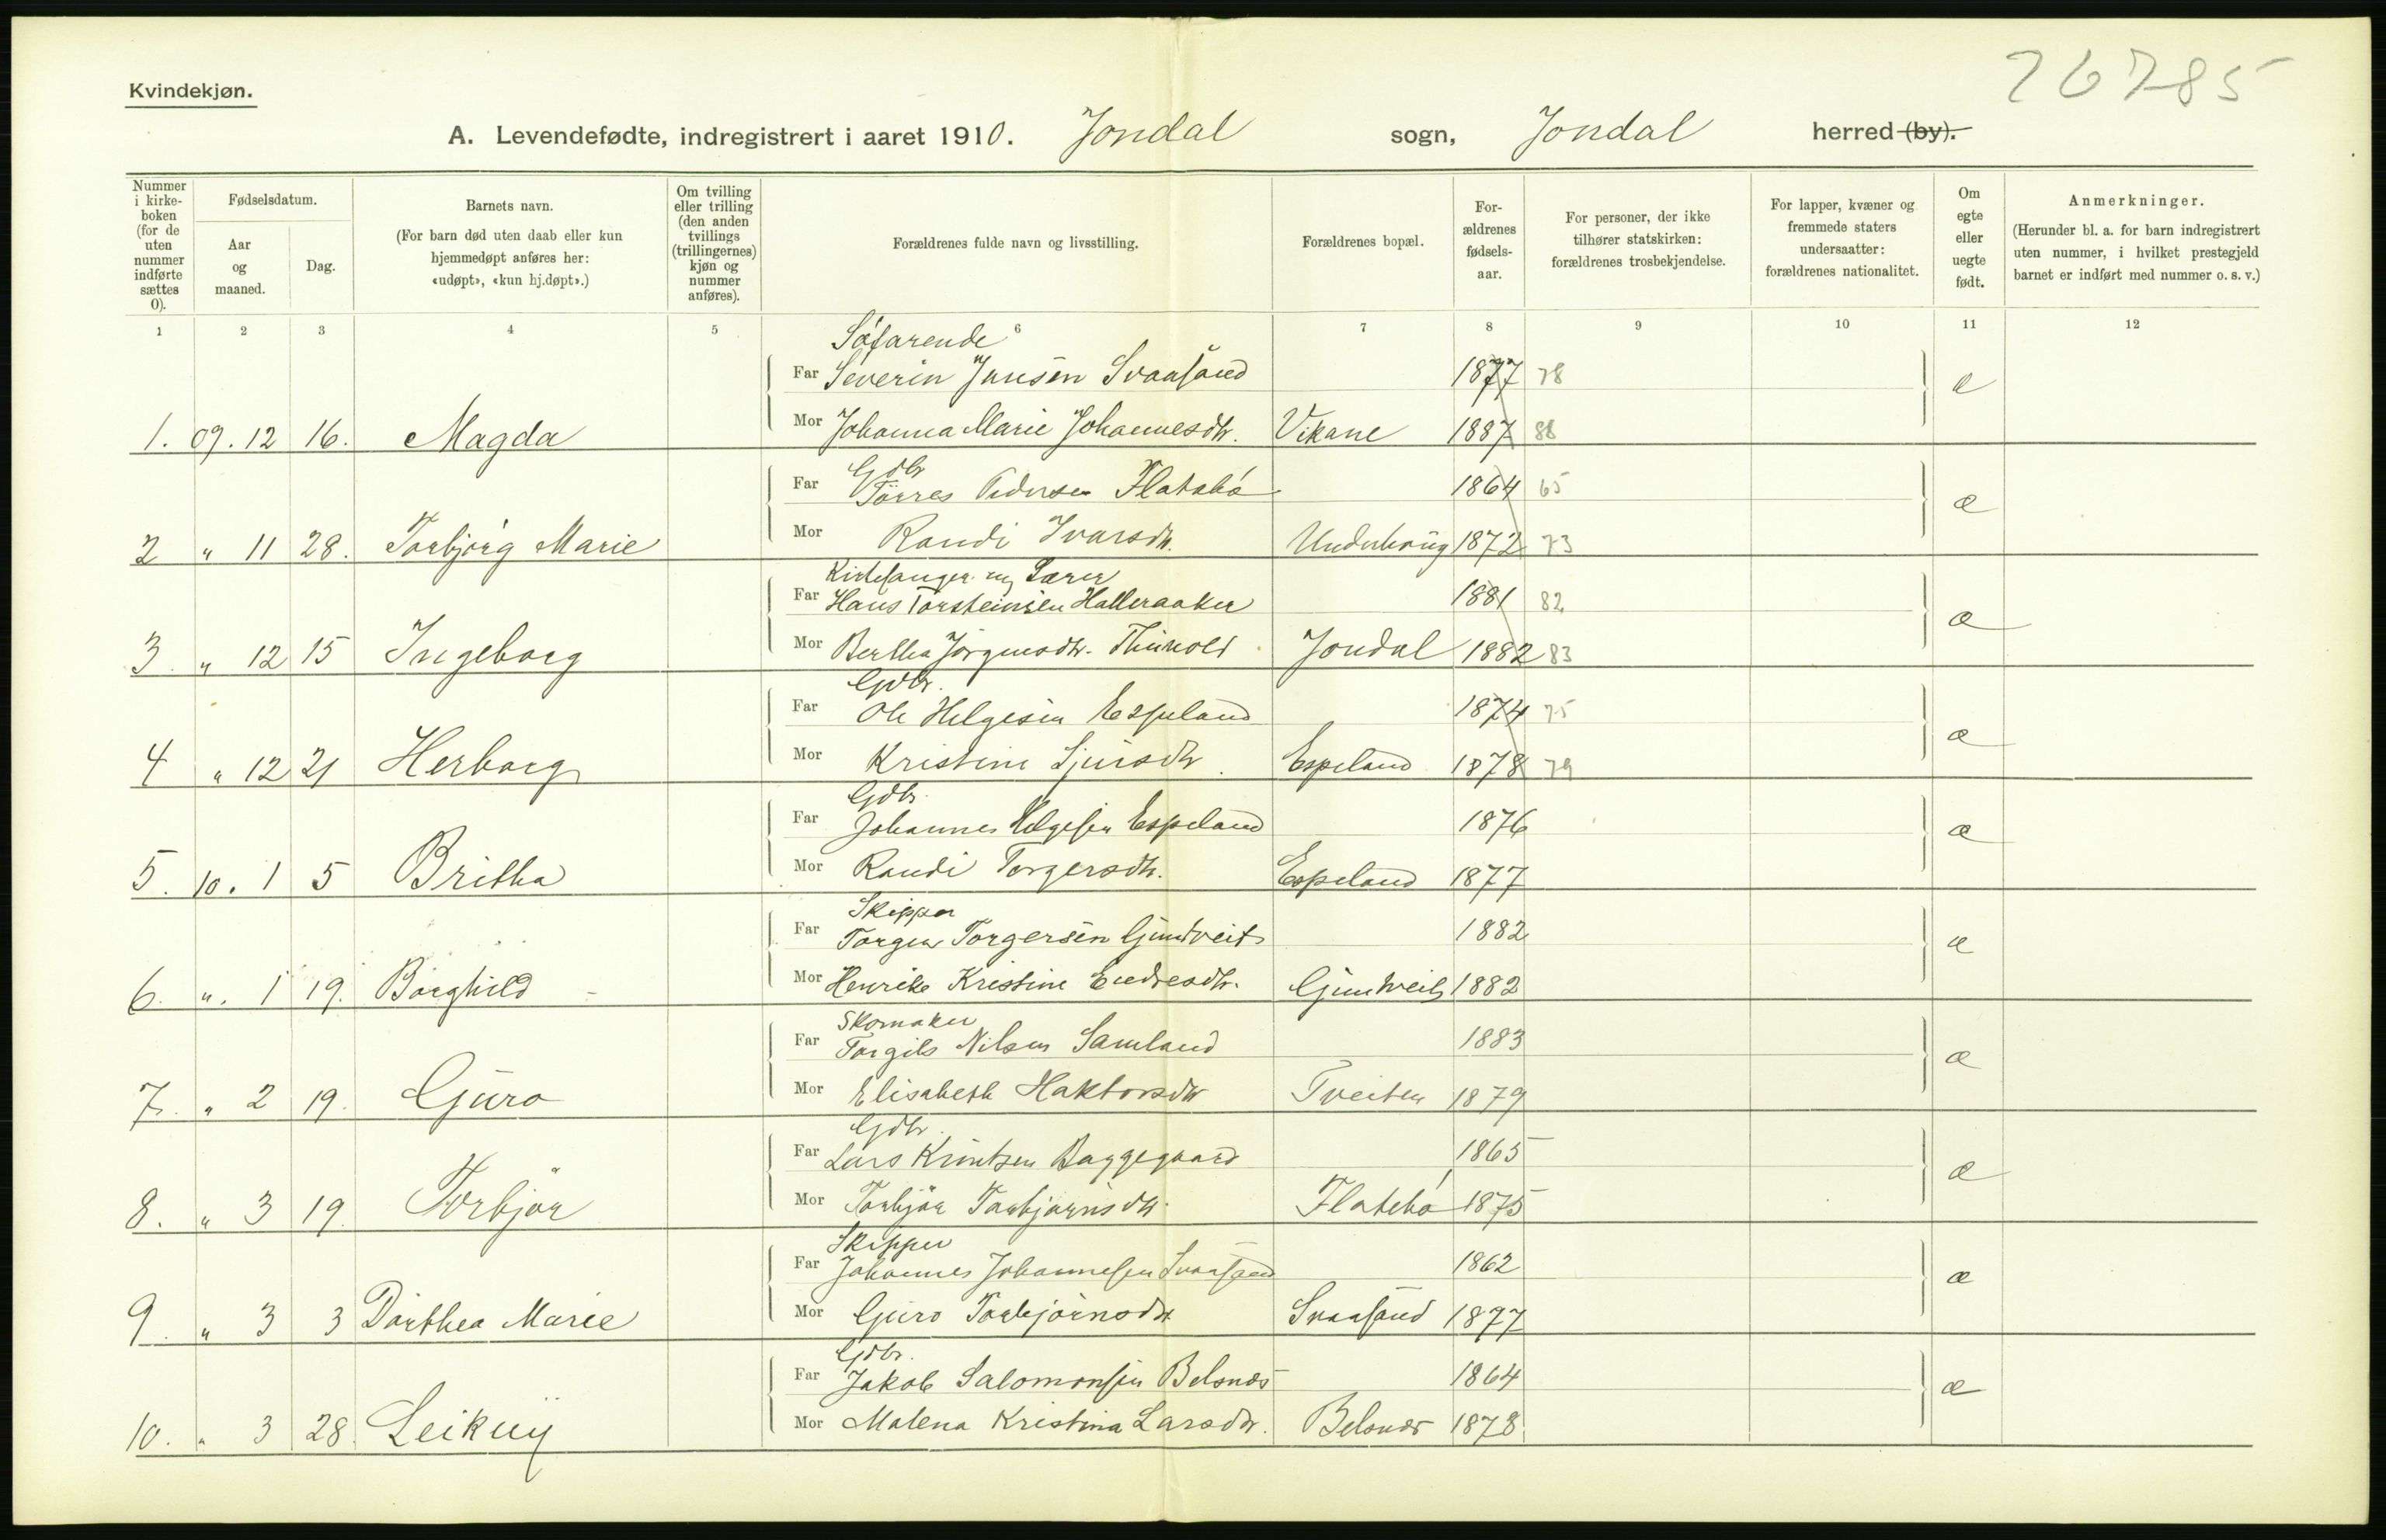 26785
Kvindekjøn.
A. Levendefødte, indregistrert i aaret 1910. Jondal sogn, Jondal herred (by).
Nummer i kirke-boken (for de uten nummer indførte sættes 0).
Fødselsdatum.
Aar og maaned.
Dag.
Barnets navn.
(For barn død uten daab eller kun hjemmedøpt anføres her: «udøpt», «kun hj.døpt».)
Om tvilling eller trilling (den anden tvillings (trillingernes) kjøn og nummer anføres).
Forældrenes fulde navn og livsstilling.
Forældrenes bopæl.
For-ældrenes fødsels-aar.
For personer, der ikke tilhører statskirken: forældrenes trosbekjendelse.
For lapper, kvæner og fremmede staters undersaatter: forældrenes nationalitet.
Om egte eller uegte født.
Anmerkninger.
(Herunder bl. a. for barn indregistrert uten nummer, i hvilket prestegjeld barnet er indført med nummer o. s. v.)
1 2 3 4 5 6 7 8 9 10 11 12
Søfarende
Far Severin Jansen Svaasand 1877 78 e
1. 09. 12 16. Magda Mor Johanna Marie Johannesdtr. Vikane 1887 88
Gdbr
Far Tørres Pedersen Flatebø 1864 65 e
2 " 11 28. Torbjørg Marie Mor Randi Ivarsdtr. Underhaug 1872 73
Kirkesanger og Lærer
Far Hans Torsteinsen Halleraaker 1881 82 e
3. " 12 15 Ingeborg Mor Bertha Jørgensdtr. Jondal 1882 83
Gdbr.
Far Ole Helgesen Espeland 1874 75 e
4 " 12 21 Herborg Mor Kristine Sjursdtr. Espeland 1878 79
Gdbr.
Far Johannes Helgesen Espeland 1876 e
5. 10. 1 5 Britha Mor Randi Torgersdtr. Espeland 1877
Skipper
Far Torger Torgersen Gjuntveit 1882 e
6. ". 1 19. Borghild Mor Henrike Kristine Endresdtr. Gjuntveit 1882
Skomaker
Far Torgils Nilsen Samland 1883 e
7. " 2 19. Guro Mor Elisabeth Haktorsdtr Tveiten 1879
Gdbr.
Far Lars Knutsen Baggegaard 1865 e
8. " 3 19. Torbjør Mor Torbjør Torbjørnsdtr. Flatebø 1875
Skipper
Far Johannes Johannesen Svaasand 1862 e
9. " 3 3 Dorthea Marie Mor Guro Torbjørnsdtr Svaasand 1877
Gdbr.
Far Jakob Salomonsen Belsnes 1864 e
10. " 3 28. Leikny Mor Malena Kristina Larsdtr. Belsnes 1878